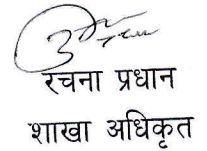 रचना प्रधान
शाखा अधिकृत